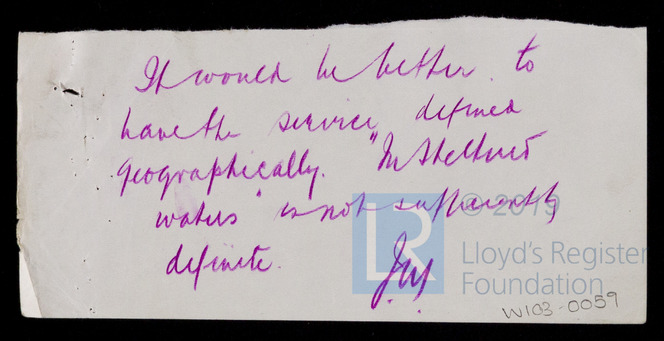 It would be better to
have the service defined
geographically. "In sheltered
waters" is not sufficiently
definite.
© 2019
LR
Lloyd's Register
Foundation
W103-0059